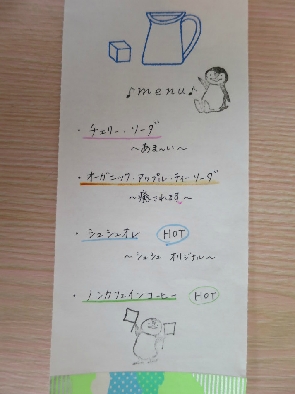 ♪menu♪
・チェリー・ソーダ
～あま～い～
・オーガニック・アップル・ティーソーダ
～癒されます。～
・シュシュオレ HOT
～シュシュ オリジナル～
・ノンカフェインコーヒー HOT